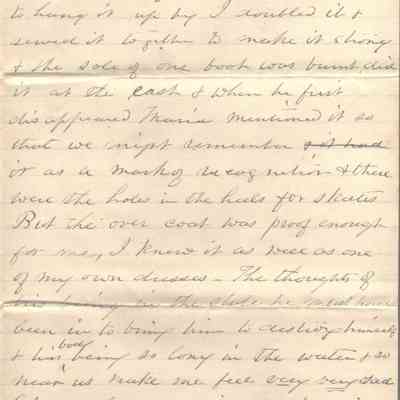 to hang it up by I doubled it &
sewed it together to make it strong
& the sole of one boot was burnt, did
it at the East & when he first
disappeared Maria mentioned it so
that we might remember & it had
it as a mark of recognition & there
were the holes in the heels for skates
But the over coat was proof enough
for me, I knew it as well as one
of my own dresses - The thoughts of
his being in the state he must have
been in to bring him to destroy himself
& his body being so long in the water & so
near us make me feel very very sad